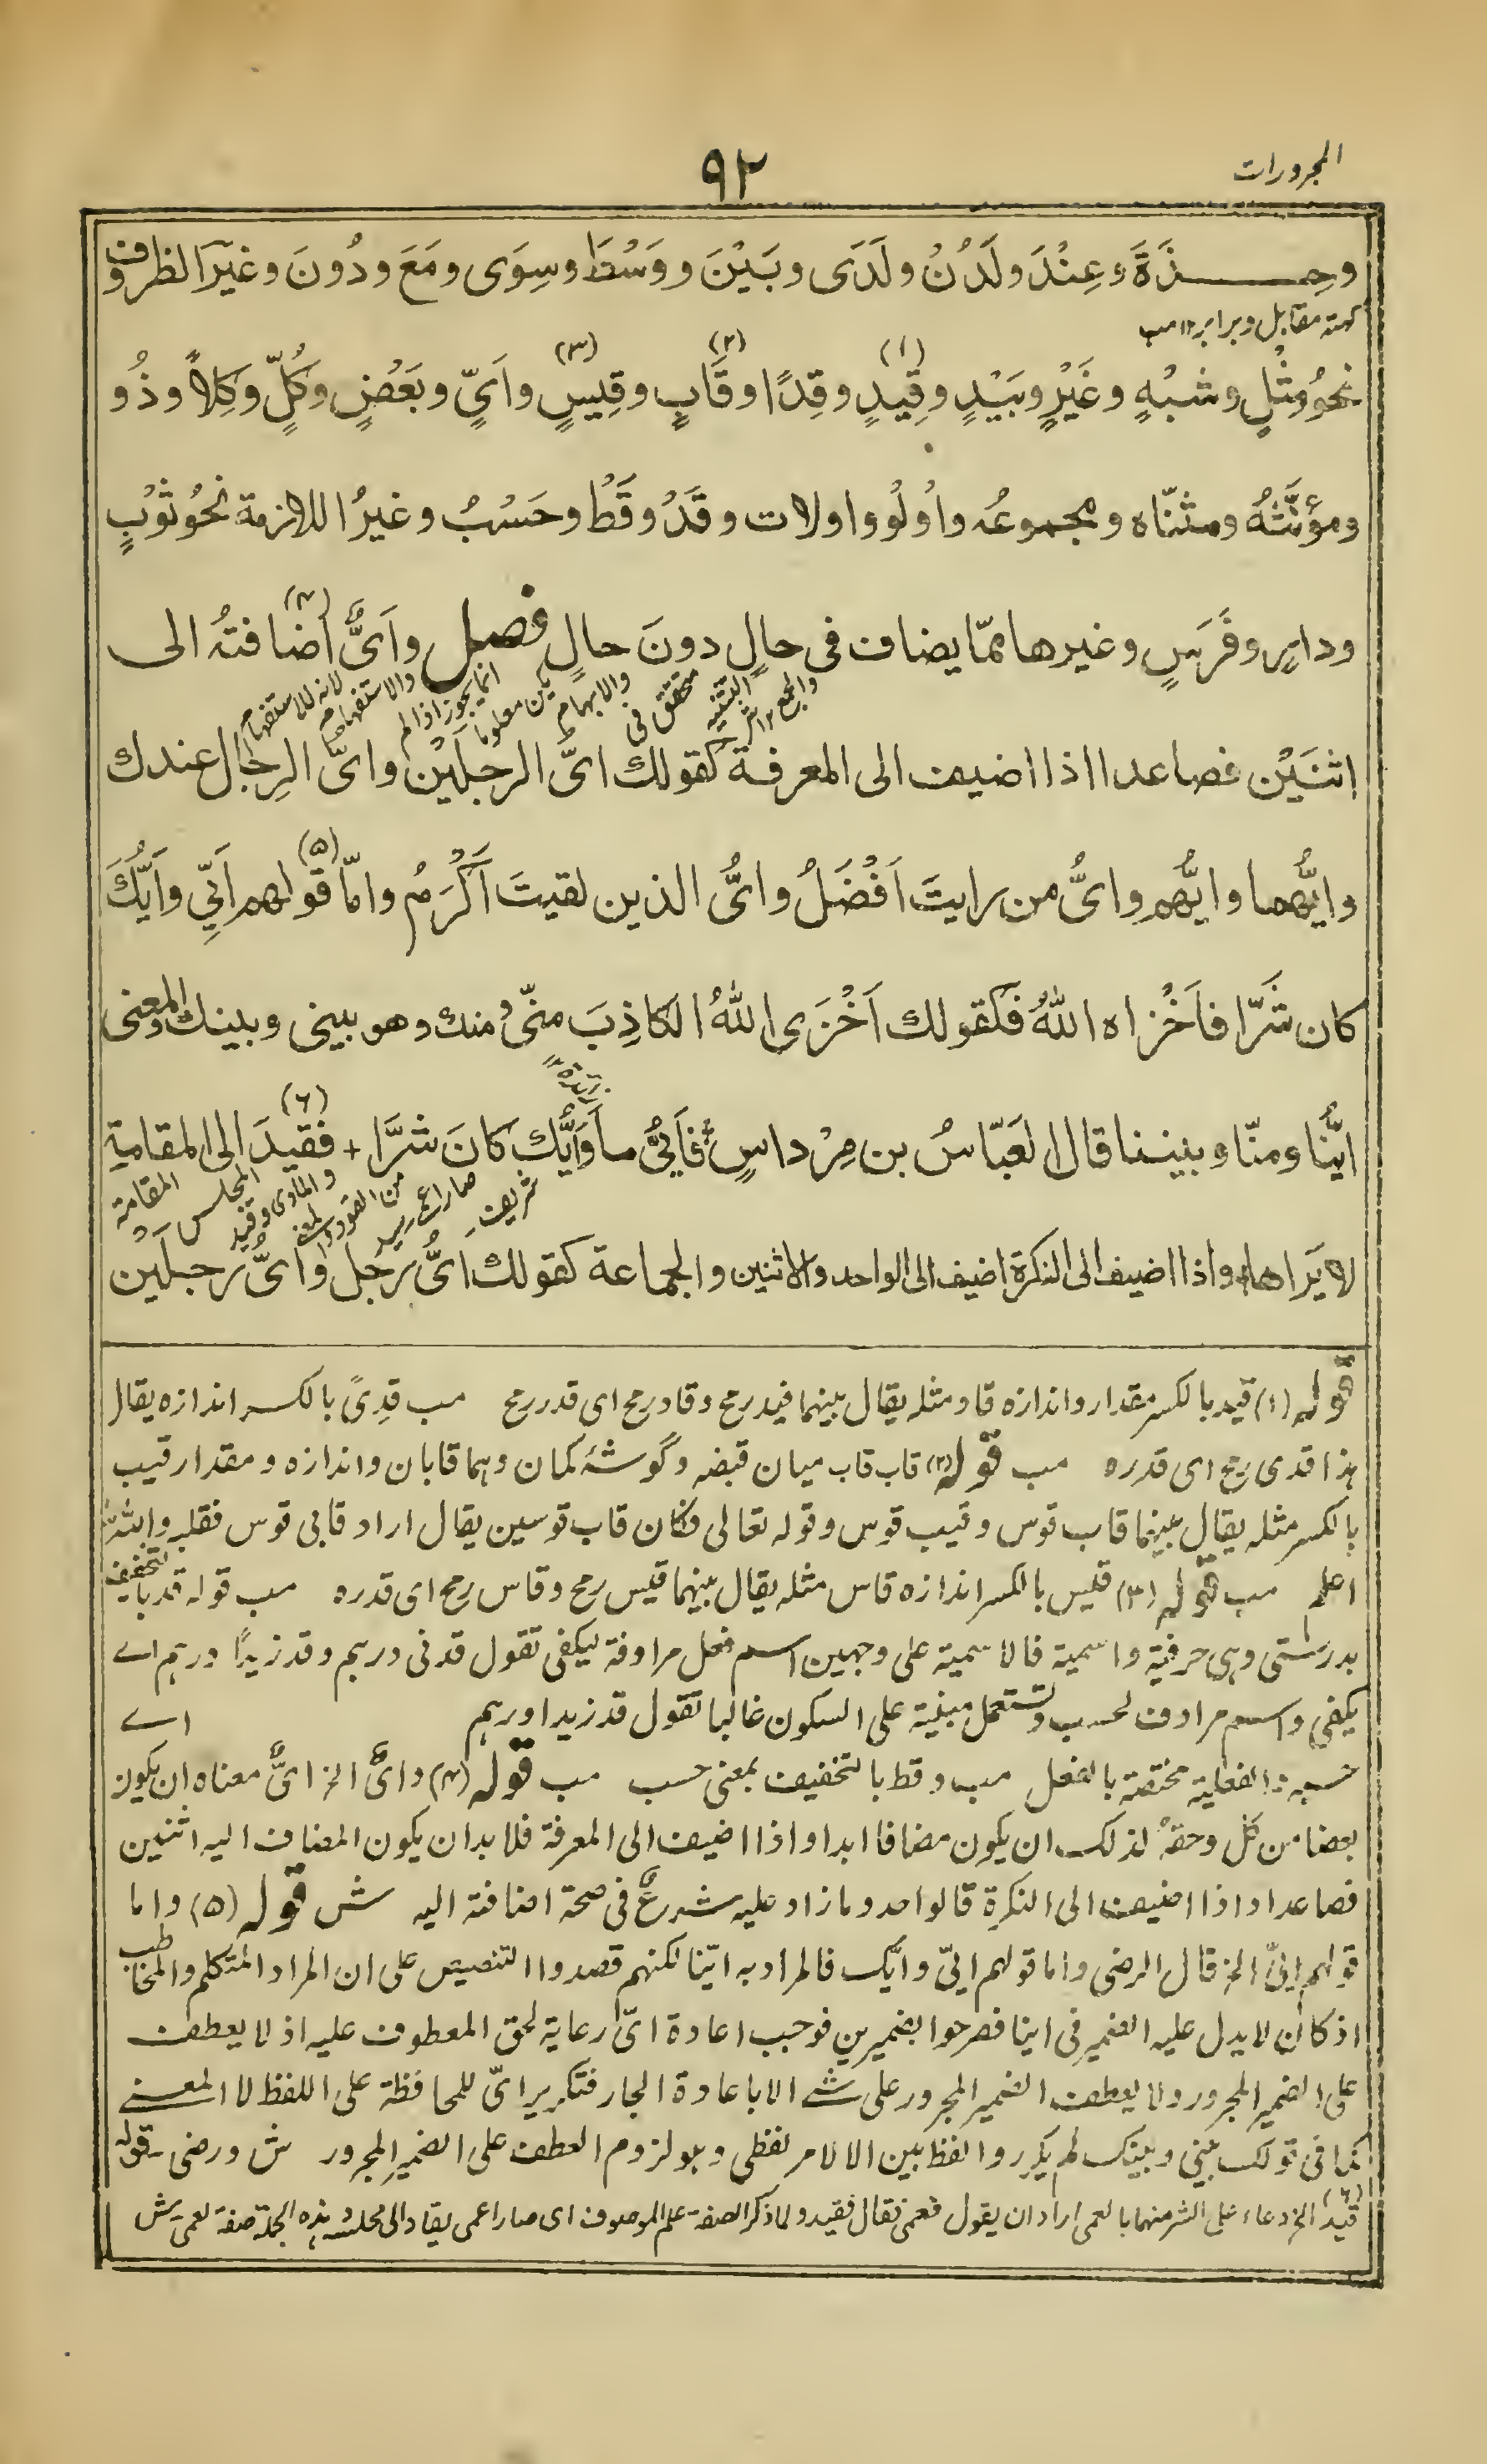 المجرورات
٩٢
وحِذَةَ وعِنْدَ ولَدُنْ ولَدَى وبَيْنَ ووَسْطَ وسِوَى ومَعَ ودُونَ وغيرَ الظروف
نحوُ مِثْلٍ وشبْهٍ وغَيْرٍ وبَيْدٍ وقِيدٍ (١) وقِدًا وقَابٍ (٢) وقِيسٍ (٣) واَيٍّ وبَعْضٍ وكُلٍّ وكِلاَ وذُو
ومؤنَّثهُ ومثنّاه ومجموعُه واُولُو واولات وقَدْ وقَطْ وحَسْبُ وغيرُ اللازمة نحوُ ثوْبٍ
ودارٍ وفَرَسٍ وغيرها ممّا يضاف فى حالٍ دونَ حالٍ فصل واَىُّ (٤) اضافتهُ الى
اثنَيْن فصاعدا اذا اضيف الى المعرفة كقولك اىّ الرجلَيْن واىّ الرِجال عندك
وايُّهما وايُّهم واىُّ من رايتَ اَفْضَلُ واىُّ الذين لقيتَ اَكْرَمُ وامّا (٥) قولهم اَيِّي واَيُّكَ
كان شَرًّا فاَخْزاه اللهُ فكقولك اَخْزَى اللهُ الكاذِبَ منّى ومنك وهو بينى وبينك والمعنى
ايُّنا ومنّا وبيننا قال العَبّاسُ بن مِرْداسٍ فاَيِّيْ ما وَاَيُّك كانَ شرَّا + فقيدَ (٦) الى المقامةِ
لا يَراها واذا اضيف الى النكرة اضيف الى الواحد والاثنين والجماعة كقولك اىُّ رجُل واىُّ رجلَيْن
قوله (١) قيد بالكسر مقدار واندازه قاد مثله يقال بينهما قيد رمح وقاد رمح اى قدر رمح مب قِدىً بالكسر اندازه يقال
هذا قدى رمح اى قدره مب قوله (٢) قاب قاب ميان قبضه وگوشۀ كمان وهما قابان واندازه ومقدار قيب
بالكسر مثله يقال بينهما قاب قوس وقيب قوس وقوله تعالى فكان قاب قوسين يقال اراد قابى قوس فقلب والله
اعلم مب قوله (٣) قيس بالكسر اندازه قاس مثله يقال بينهما قيس رمح وقاس رمح اى قدره مب قوله قد بالتخفيف
بدرستى وهى حرفية واسمية فالاسمية على وجهين اسم فعل مرادفة ليكفى تقول قدنى درهم وقد زيدًا درهم اے
يكفى واسم مرادف لحسب وتستعمل مبنية على السكون غالبا تقول قد زيدا درهم اے
حسبه والفعلية مختصة بالفعل مب وقط بالتخفيف بمعنى حسب مب قوله (٤) واىُّ الخ اىُّ معناه ان يكون
بعضا من كل وحقه لذلك ان يكون مضافا ابدا واذا اضيف الى المعرفة فلا بد ان يكون المضاف اليه اثنين
فصاعدا واذا اضيف الى النكرة فالواحد وما زاد عليه شرعٌ فى صحة اضافته اليه ش قوله (٥) واما
قولهم ايىّ الخ قال الرضى واما قولهم ايىّ وايّك فالمراد به ايّنا لكنهم قصدوا التنصيص على ان المراد المتكلم والمخاطب
اذ كان لا يدل عليه الضمير فى اينا فصرحوا بالضميرين فوجب اعادة اىّ رعاية لحق المعطوف عليه اذ لا يعطف
على الضمير المجرور ولا يعطف الضمير المجرور على شے الا باعادة الجار فتكرير اىّ للمحافظة على اللفظ لا المعنے
كما فى قولك بينى وبينك لم يكرروا لفظ بين الا لامر لفظى وهو لزوم العطف على الضمير المجرور ش ورضى قوله
(٦) قيد الخ دعاء على الشر منهما بالعمى اراد ان يقول فعمى فقال فقيد ولما ذكر الصفة علم الموصوف اى صار اعمى يقاد الى مجلسه وهذه الجملة صفة لعمى ش